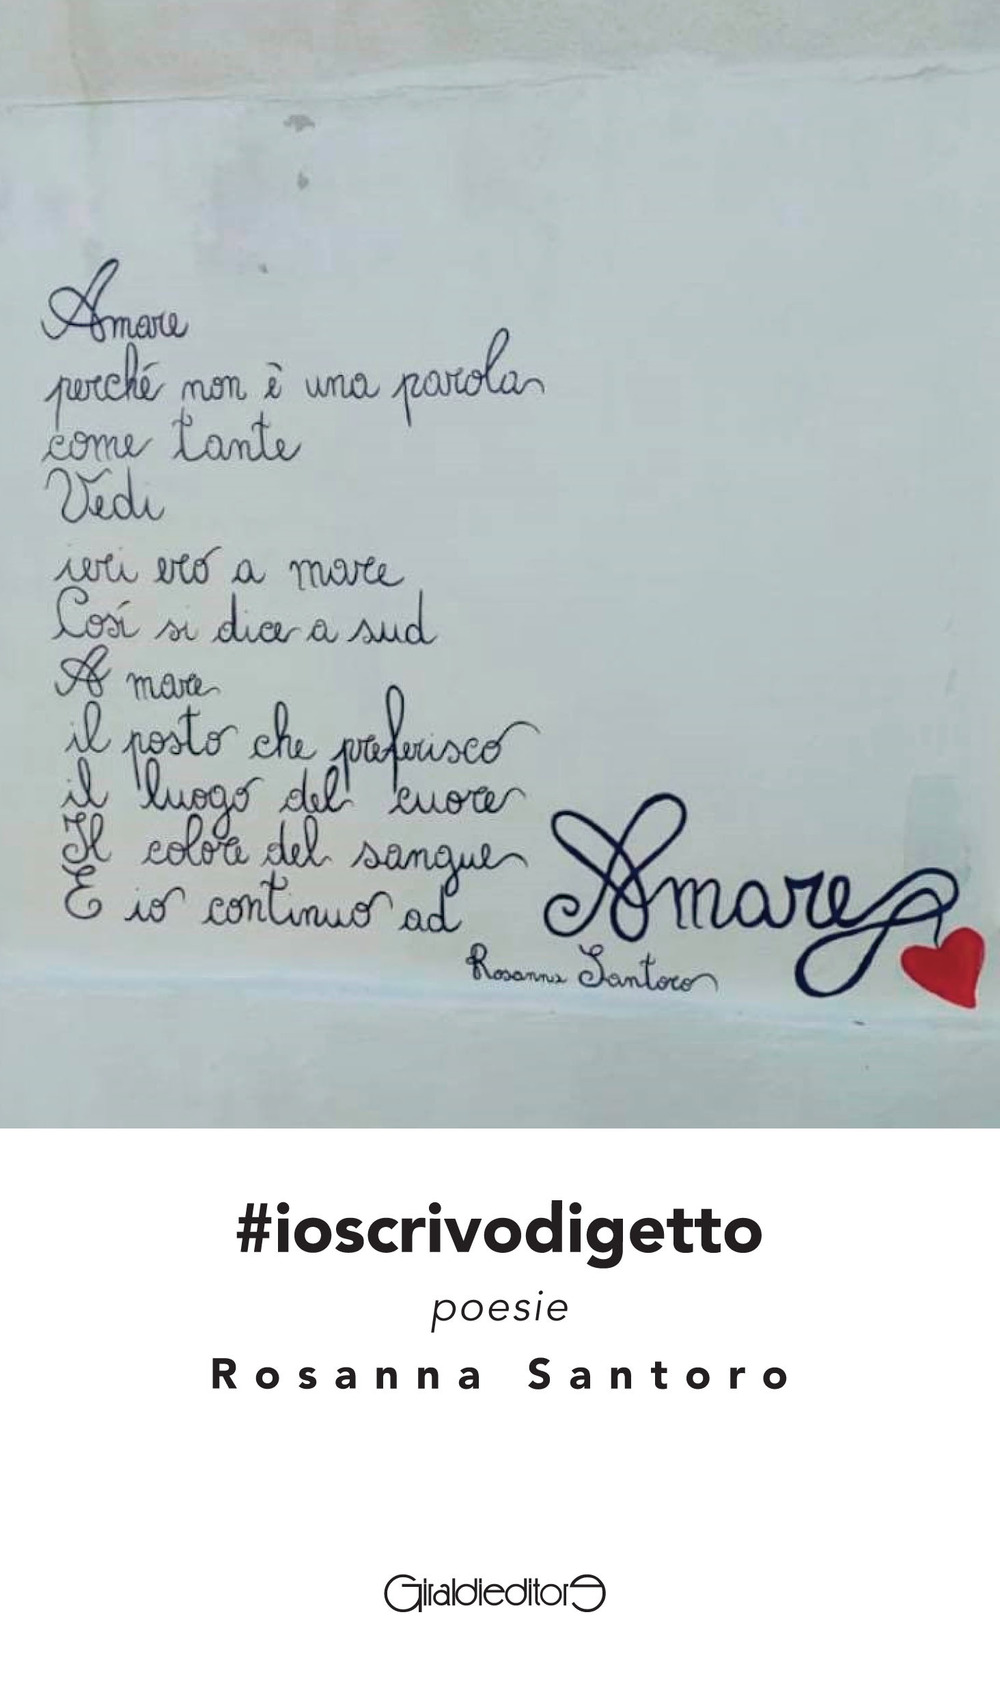 Amare
perché non è una parola
come tante
Vedi
ieri ero a mare
Così si dice a sud
A mare
il posto che preferisco
il luogo del cuore
Il colore del sangue
E io continuo ad Amare
Rosanna Santoro
#ioscrivodigetto
poesie
Rosanna Santoro
Giraldieditore